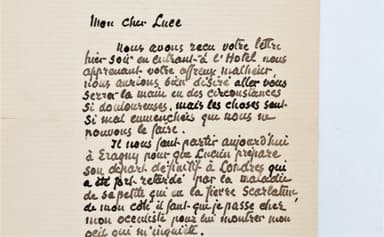 Mon cher Luce
Nous avons reçu votre lettre
hier soir en entrant à l'Hotel nous
apprenant votre affreux malheur,
nous aurions bien désiré aller vous
serrer la main en des circonstances
si douloureuses, mais les choses sont
si mal emmenchées que nous ne
pouvons le faire.
Il nous faut partir aujourd'hui
à Eragny pour que Lucien prépare
son départ définitif à Londres qui
a été fort retardé par la maladie
de sa petite qui eu la fièvre Scarlatine
de mon côté il faut que je passe chez
mon occuliste pour lui montrer mon
oeil qui m'inquiète.